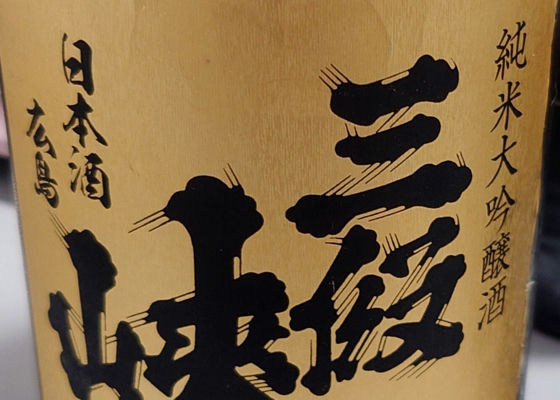 純米大吟醸酒
三段
峡
日本酒
広島